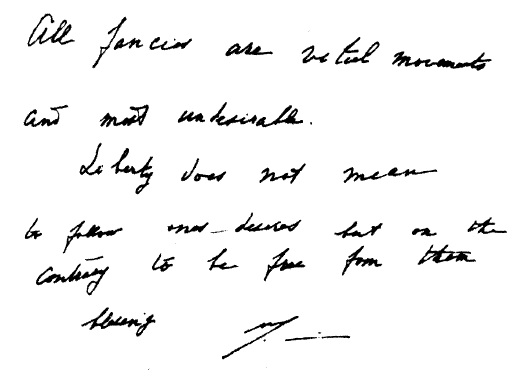 All fancies are vital movements
and most undesirable.
Liberty does not mean
to follow one's desires but on the
contrary to be free from them
blessing